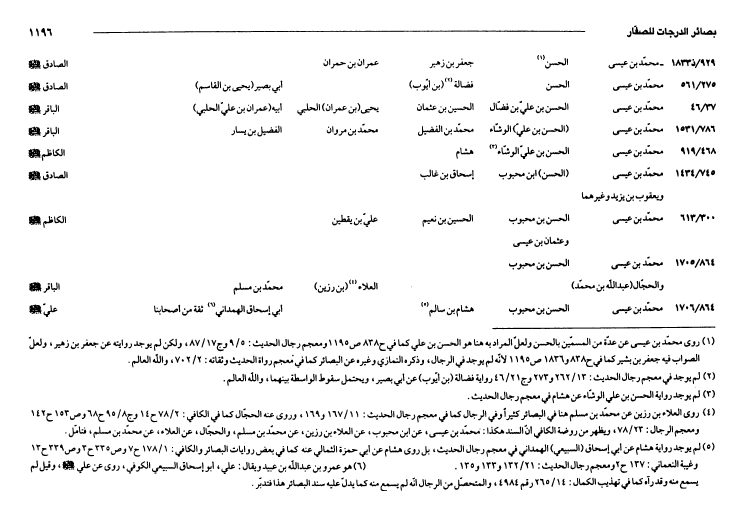 بصائر الدرجات للصفّار ١١٩٦
١٨٣٣٥/٩٢٩ ـ محمّد بن عيسى الحسن (١) جعفر بن زهير عمران بن حمران الصادق ﷺ
٥٦١/٢٧٥ محمّد بن عيسى الحسن فضالة (٢) (بن أيّوب) أبي بصير (يحيى بن القاسم) الصادق ﷺ
٤٦/٣٧ محمّد بن عيسى الحسن بن عليّ بن فضّال الحسين بن عثمان يحيى (بن عمران) الحلبي أبيه (عمران بن عليّ الحلبي) الباقر ﷺ
١٥٣١/٧٨٦ محمّد بن عيسى (الحسن بن علي) الوشّاء محمّد بن الفضيل محمّد بن مروان الفضيل بن يسار الباقر ﷺ
٩١٩/٤٦٨ محمّد بن عيسى الحسن بن عليّ الوشّاء (٣) هشام الكاظم ﷺ
١٤٣٤/٧٤٥ محمّد بن عيسى (الحسن) ابن محبوب إسحاق بن غالب الصادق ﷺ
ويعقوب بن يزيد وغيرهما
٦١٣/٣٠٠ محمّد بن عيسى الحسن بن محبوب الحسين بن نعيم عليّ بن يقطين الكاظم ﷺ
وعثمان بن عيسى
١٧٠٥/٨٦٤ محمّد بن عيسى الحسن بن محبوب
والحجّال (عبدالله بن محمّد) العلاء (٤) (بن رزين) محمّد بن مسلم الباقر ﷺ
١٧٠٦/٨٦٤ محمّد بن عيسى الحسن بن محبوب هشام بن سالم (٥) أبي إسحاق الهمداني (٦) ثقة من أصحابنا عليّ ﷺ
(١) روى محمّد بن عيسى عن عدّة من المسمّين بالحسن ولعلّ المراد به هنا هو الحسن بن علي كما في ح٨٣٨ ص١١٩٥ ومعجم رجال الحديث : ٩/٥ وج٨٧/١٧ ، ولكن لم يوجد روايته عن جعفر بن زهير ، ولعلّ
الصواب فيه جعفر بن بشير كما في ح٨٣٨ و١٨٣٦ ص١١٩٥ لأنّه لم يوجد في الرجال ، وذكره النمازي وغيره عن البصائر كما في معجم رواة الحديث وثقاته : ٧٠٢/٢ ، والله العالم .
(٢) لم يوجد في معجم رجال الحديث : ٢٦٢/١٣ و٢٧٣ وج٤٦/٢١ رواية فضالة (بن أيّوب) عن أبي بصير ، ويحتمل سقوط الواسطة بينهما ، والله العالم .
(٣) لم يوجد رواية الحسن بن علي الوشّاء عن هشام في معجم رجال الحديث .
(٤) روى العلاء بن رزين عن محمّد بن مسلم هنا في البصائر كثيراً وفي الرجال كما في معجم رجال الحديث : ١٦٧/١١ و١٦٩ ، وروى عنه الحجّال كما في الكافي : ٧٨/٢ ح١٤ وج٩٥/٨ ح٦٨ وص١٥٣ ح١٤٢
ومعجم الرجال : ٧٨/٢٣ ، ويظهر من روضة الكافي انّ السند هكذا : محمّد بن عيسى ، عن ابن محبوب ، عن العلاء بن رزين ، عن محمّد بن مسلم ، والحجّال ، عن العلاء ، عن محمّد بن مسلم ، فتأمّل .
(٥) لم يوجد رواية هشام عن أبي إسحاق (السبيعي) الهمداني في معجم رجال الحديث ، بل روى هشام عن أبي حمزة الثمالي عنه كما في بعض روايات البصائر والكافي : ١٧٨/١ ح٧ وص٣٣٥ ح٣ وص٣٣٩ ح١٣
وغيبة النعماني : ١٣٧ ح٢ ومعجم رجال الحديث : ١٣٢/٢١ و١٣٣ و١٣٥ . (٦) هو عمرو بن عبدالله بن عبيد ويقال : علي ، أبو إسحاق السبيعي الكوفي ، روى عن علي ﷺ ، وقيل لم
يسمع منه وقد رآه كما في تهذيب الكمال : ٢٦٥/١٤ رقم ٤٩٨٤ ، والمتحصّل من الرجال انّه لم يسمع منه كما يدلّ عليه سند البصائر هذا فتدبّر .